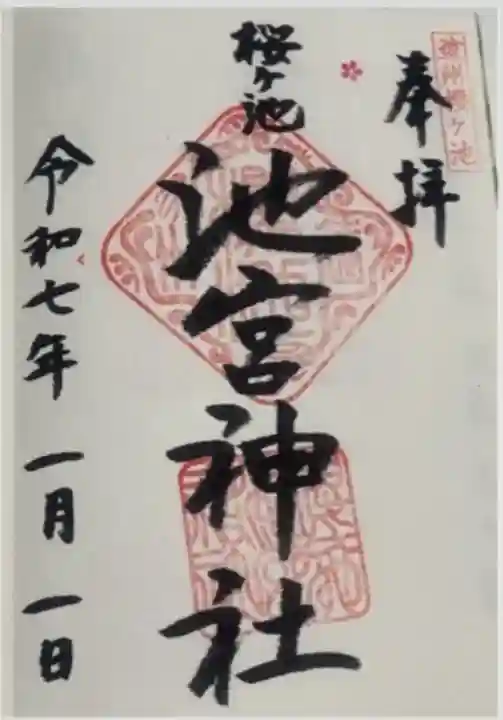 遠州櫻ヶ池
奉拝
桜ヶ池
池宮神社
令和七年 一月 一日